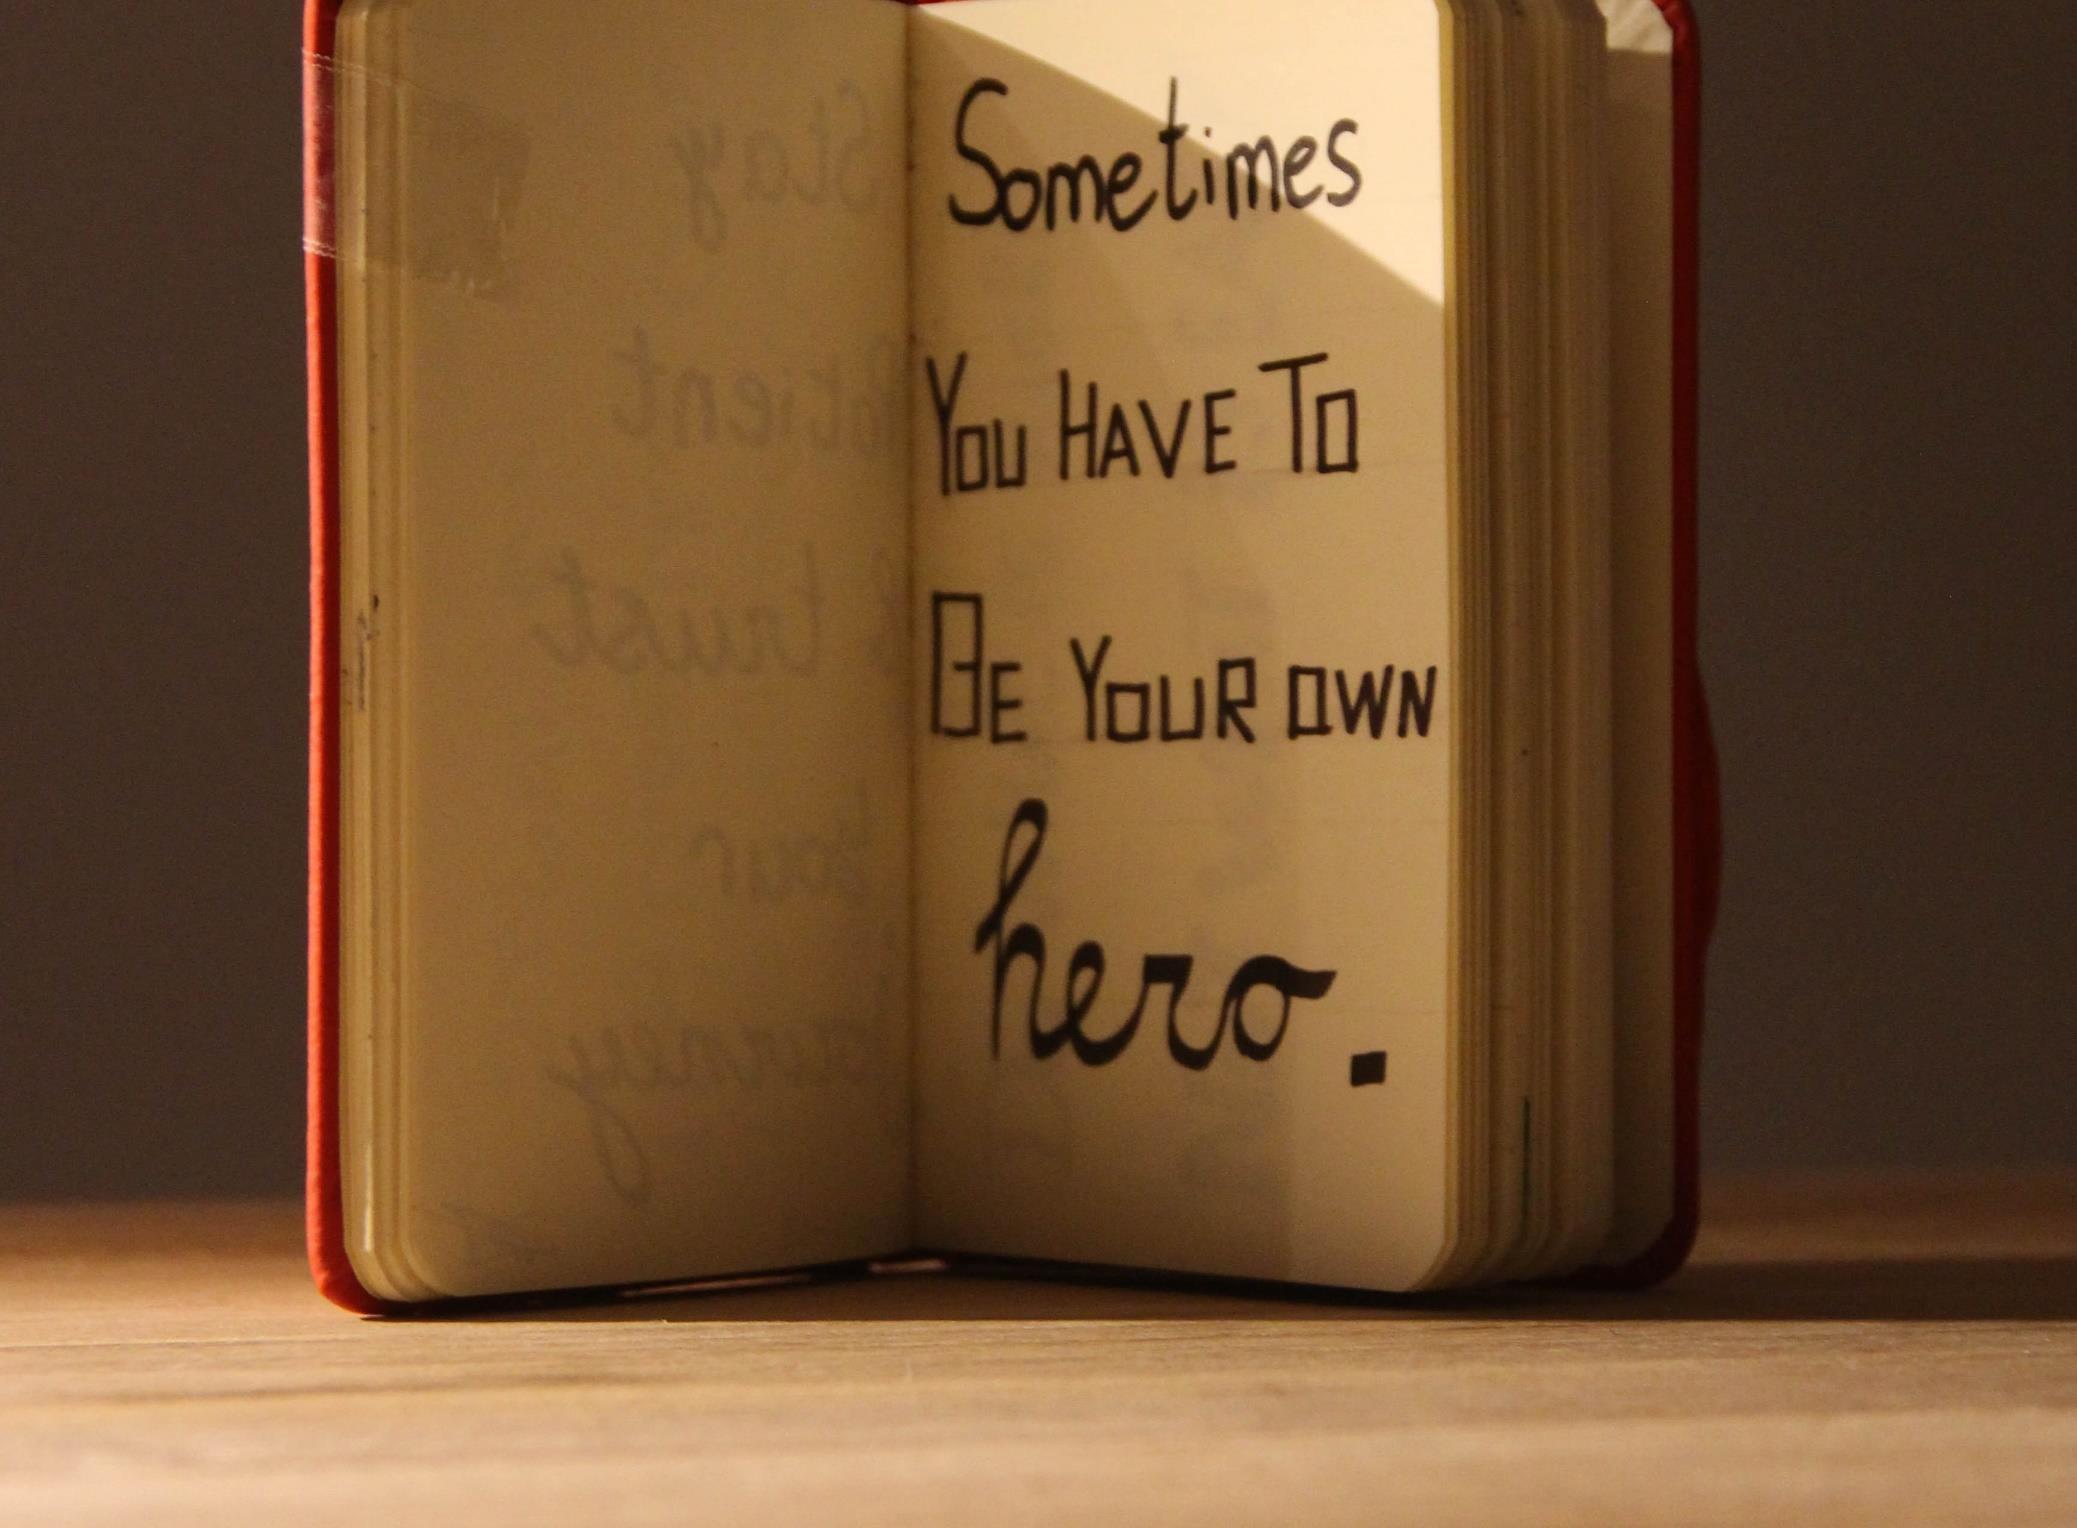 Stay
Patient
& trust
your
journey
Sometimes
You HAVE TO
BE YOUR OWN
hero.